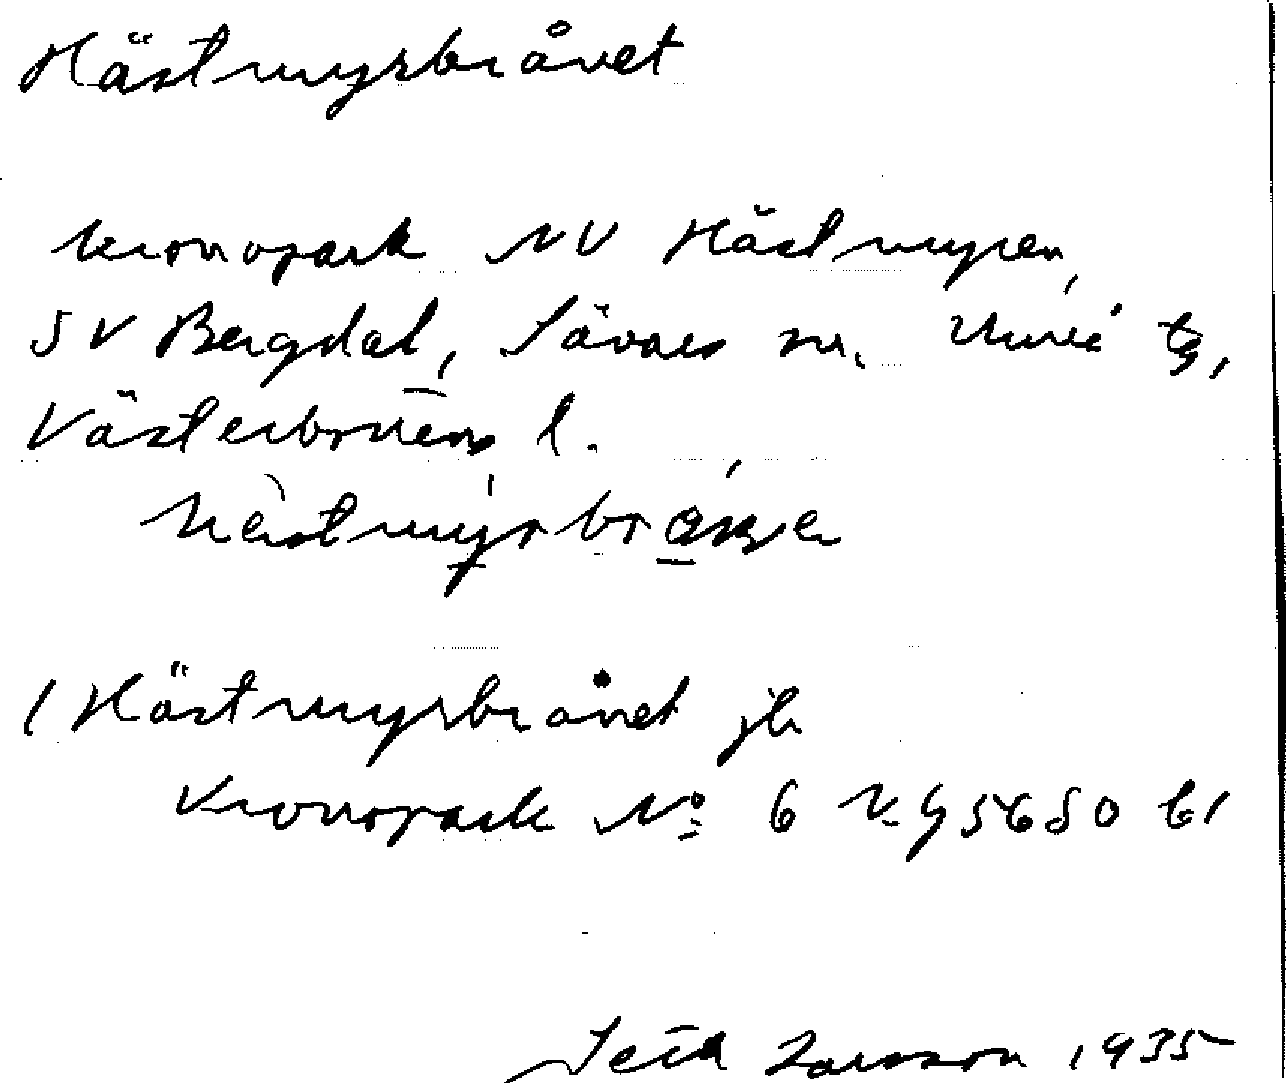 Hästmyrbrånet
kronopark NV Hästmyren,
SV Bergdal, Sävars sn. Umeå tg,
Västerbottens l.
1 Hästmyrbrånet jb
Kronopark No 6 5650 b1
Larsson 1935